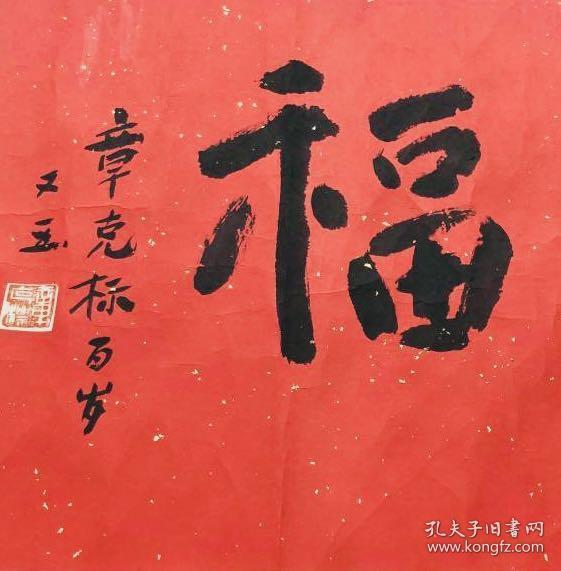 福
章克标百岁
又五
孔夫子旧書网
www.kongfz.com